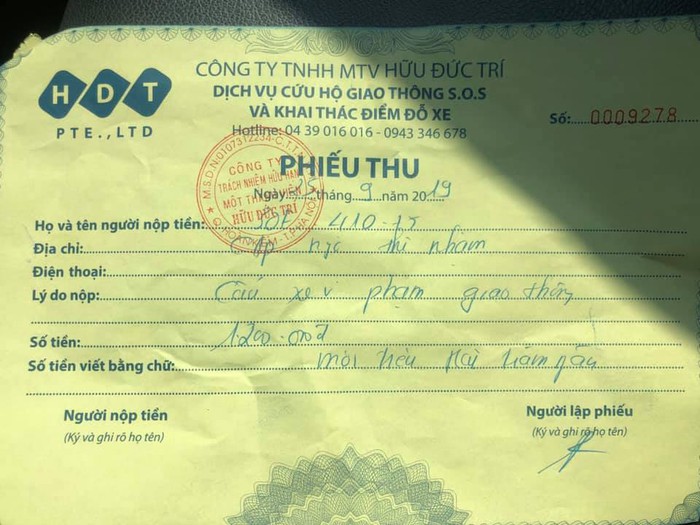 HDT
PTE., LTD
CÔNG TY TNHH MTV HỮU ĐỨC TRÍ
DỊCH VỤ CỨU HỘ GIAO THÔNG S.O.S
VÀ KHAI THÁC ĐIỂM ĐỖ XE
Hotline: 04 39 016 016 - 0943 346 678
Số: 0009278
PHIẾU THU
Ngày 25 tháng 9 năm 2019
M.S.D.N:0107312234-C.T.T.N
CÔNG TY
TRÁCH NHIỆM HỮU HẠN
MỘT THÀNH VIÊN
HỮU ĐỨC TRÍ
Họ và tên người nộp tiền: 410-15
Địa chỉ: thị nhâm
Điện thoại:
Lý do nộp: Cẩu xe v phạm giao thông
Số tiền: 1.200.000đ
Số tiền viết bằng chữ: một triệu Hai trăm
Người nộp tiền
(Ký và ghi rõ họ tên)
Người lập phiếu
(Ký và ghi rõ họ tên)